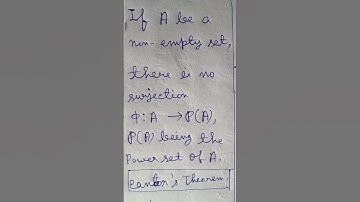 If A be a
non-empty set,
there is no
surjection
Φ: A → P(A),
P(A) being the
Power set of A.
Cantor's Theorem